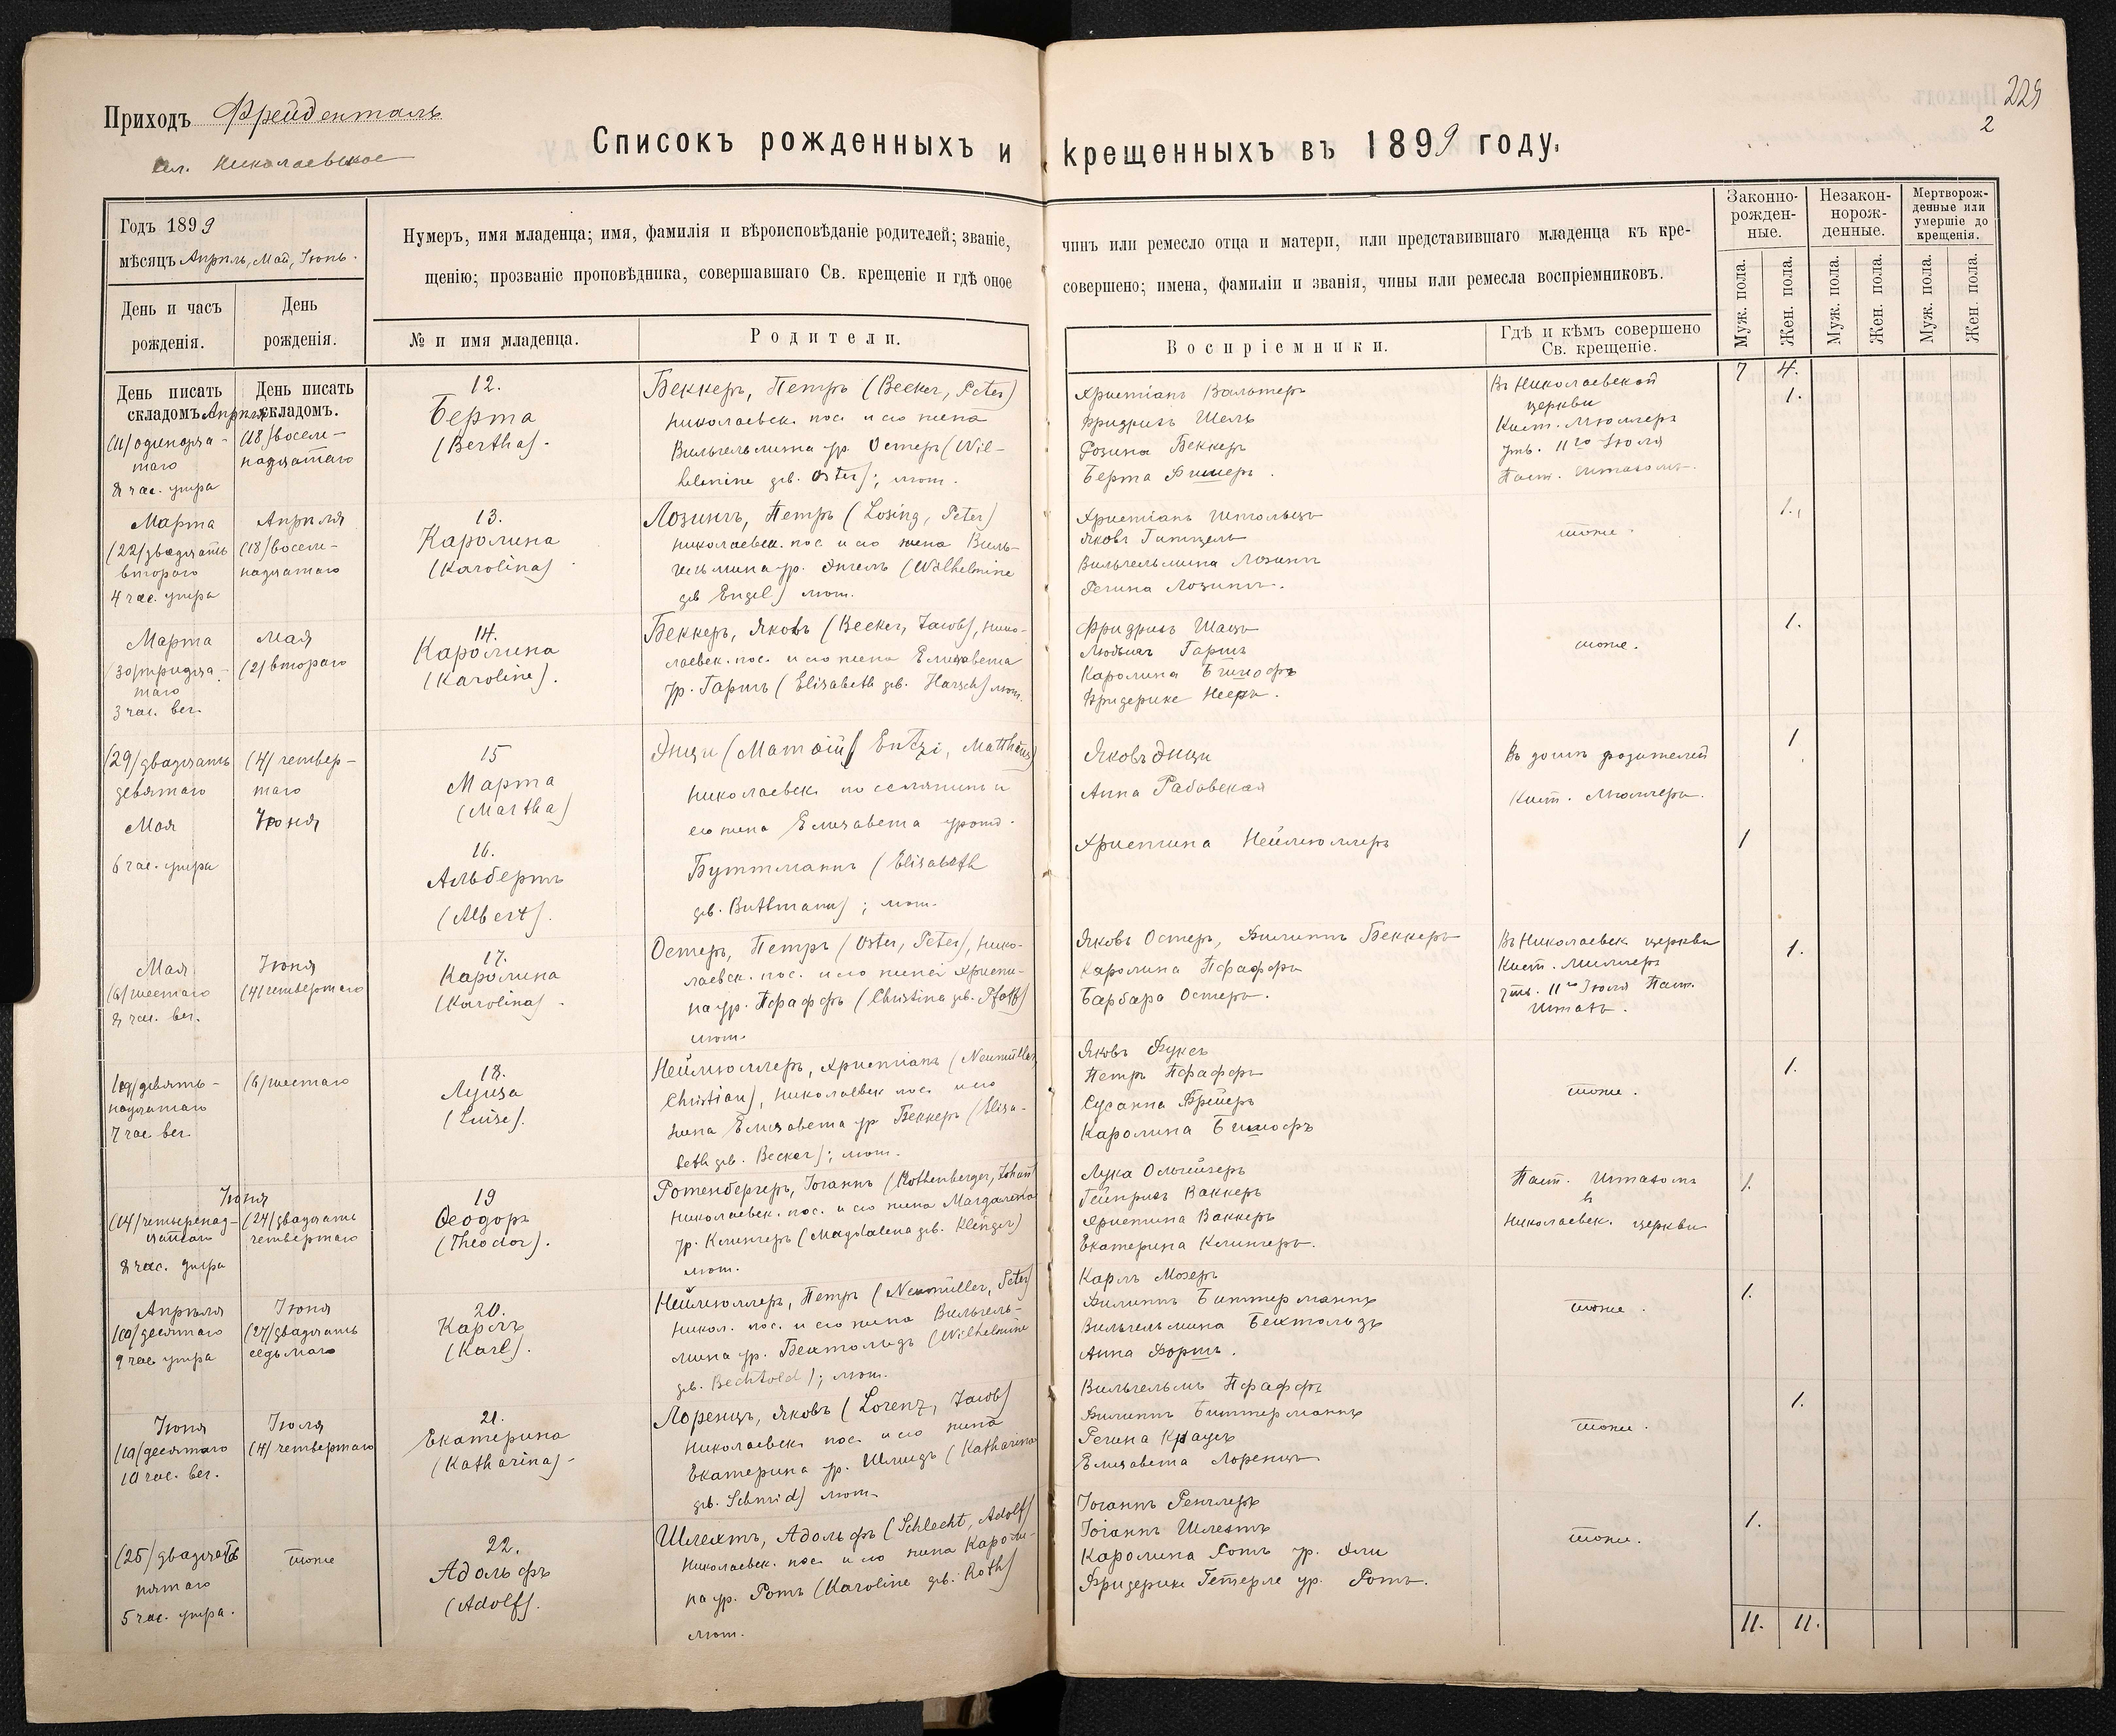 Приходъ Фрейденталь
сел. Николаевское
229
2
Списокъ рожденныхъ и крещенныхъ въ 1899 году.
Годъ 1899
мѣсяцъ Апрѣль, Май, Іюнь.
День и часъ рожденія.
День рожденія.
Нумеръ, имя младенца; имя, фамилія и вѣроисповѣданіе родителей; званіе, чинъ или ремесло отца и матери, или представившаго младенца къ кре-
щенію; прозваніе проповѣдника, совершавшаго Св. крещеніе и гдѣ оное совершено; имена, фамиліи и званія, чины или ремесла воспріемниковъ.
№ и имя младенца.
Родители.
Воспріемники.
Гдѣ и кѣмъ совершено
Св. крещеніе.
Законно-
рожден-
ные.
Незакон-
норож-
денные.
Мертворож-
денные или
умершіе до
крещенія.
Муж. пола.
Жен. пола.
Муж. пола.
Жен. пола.
Муж. пола.
Жен. пола.
День писать
складомъ Апрѣля
(11) одинадца-
таго
8 час. утра
День писать
складомъ.
(18) восем-
надцатаго
12.
Берта
(Bertha).
Беккеръ, Петръ (Becker, Peter)
николаевск. пос. и его жена
Вильгельмина ур. Остеръ (Wil-
helmine gb. Oster); лют.
Христіанъ Вальтеръ
Фридрихъ Шель
Розина Беккеръ
Берта Фишеръ.
Въ Николаевской
церкви
Кист. Мюллеръ
утв. 11го Іюля
Паст. Штахомъ.
7 4.
1.
Марта
(22) двадцать
второго
4 час. утра
Апрѣля
(18) восем-
надцатаго
13.
Каролина
(Karolina).
Лозингъ, Петръ (Losing, Peter)
николаевск. пос. и его жена Виль-
гельмина ур. Энгель (Wilhelmine
gb Engel) лют.
Христіанъ Штольцъ
Яковъ
Вильгельмина Лозингъ
Регина Лозингъ.
тоже.
1.
Марта
(30) тридца-
таго
3 час. веч.
Мая
(2) второго
14.
Каролина
(Karoline).
Беккеръ, Яковъ (Becker, Jacob), нико-
лаевск. пос. и его жена Елизавета
ур. Гаршъ (Elisabeth gb. Harsch) лют.
Фридрихъ Шацъ
Людвигъ Гаршъ
Каролина Бишофъ
Фридерике Нееръ.
тоже.
1.
(29) двадцать
девятаго
Мая
6 час. утра
(4) четвер-
таго
Іюня
15
Марта
(Martha)
16.
Альбертъ
(Albert).
Энци (Матѳій) Entzi, Matthäus)
николаевск. поселянинъ и
его жена Елизавета урожд.
Буттманъ (Elisabeth
gb. Buttmann); лют.
Яковъ Энци
Анна Рабовская
Христина Неймюллеръ
Въ домѣ родителей
Кист. Мюллеръ.
1
1
Мая
(6) шестаго
8 час. веч.
Іюня
(4) четвертаго
17.
Каролина
(Karolina).
Остеръ, Петръ (Oster, Peter), нико-
лаевск. пос. и его жена Христи-
на ур. Пфаффъ (Christina gb. Pfaff)
лют.
Яковъ Остеръ, Филиппъ Беккеръ
Каролина Пфаффъ
Барбара Остеръ.
Въ Николаевск церкви
Кист. Мюллеръ
утв. 11го Іюля Паст.
Штахъ.
1.
(19) девять-
надцатаго
7 час веч.
(6) шестаго
18.
Луиза
(Luise).
Неймюллеръ, Христіанъ (Neumüller,
Christian), николаевск пос. и его
жена Елизавета ур Беккеръ (Elisa-
beth gb. Becker); лют.
Яковъ Фуксъ
Петръ Пфаффъ
Сусанна Фрейеръ
Каролина Бишофъ
тоже.
1.
Іюня
(14) четырнад-
цатаго
8 час. утра
(24) двадцать
четвертаго
19
Ѳеодоръ
(Theodor).
Ротенбергеръ, Іоганнъ (Rothenberger, Johann)
николаевск. пос. и его жена Маргарета
ур. Клингеръ (Magdalena gb. Klinger)
лют.
Лука Ольгейзеръ
Гейнрихъ Ваккеръ
Христина Ваккеръ
Екатерина Клингеръ.
Паст. Штахомъ
в
Николаевск. церкви
1.
Апрѣля
(10) десятаго
9 час утра
Іюня
(27) двадцать
седьмаго
20.
Карлъ
(Karl).
Неймюллеръ, Петръ (Neumüller, Peter)
никол. пос. и его жена Вильгель-
мина ур. Бехтольдъ (Wilhelmine
gb. Bechtold); лют.
Карлъ Мозеръ
Филиппъ Биттерманъ
Вильгельмина Бехтольдъ
Анна Форшъ.
тоже.
1.
Іюня
(10) десятаго
10 час. веч.
Іюля
(4) четвертаго
21.
Екатерина
(Katharina).
Лоренцъ, Яковъ (Lorenz, Jacob)
Николаевск. пос. и его жена
Екатерина ур. Шмидъ (Katharina
gb. Schmid) лют.
Вильгельмъ Пфаффъ
Филиппъ Биттерманъ
Регина Крацъ
Елизавета Лоренцъ
тоже.
1.
(25) двадцать
пятаго
5 час. утра.
тоже
22.
Адольфъ
(Adolf).
Шлехтъ, Адольфъ (Schlecht, Adolf)
Николаевск. пос. и его жена Кароли-
на ур. Ротъ (Karoline gb. Roth)
лют.
Іоганнъ Ренглеръ
Іоганнъ Шлехтъ
Каролина Ротъ ур. Эли
Фридерике Гетерле ур. Ротъ.
тоже.
1.
11. 11.